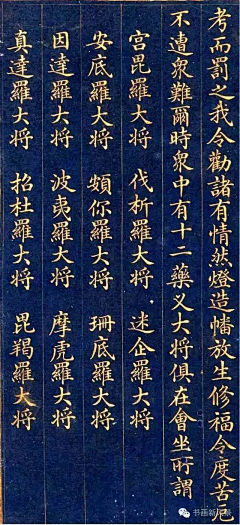 考而罰之我令勸諸有情然燈造幡放生修福令度苦厄
不遭衆難爾時衆中有十二藥叉大将俱在會坐所謂
宫毘羅大将 伐析羅大将 迷企羅大将
安底羅大将 頞你羅大将 珊底羅大将
因達羅大将 波夷羅大将 摩虎羅大将
真達羅大将 招杜羅大将 毘羯羅大将